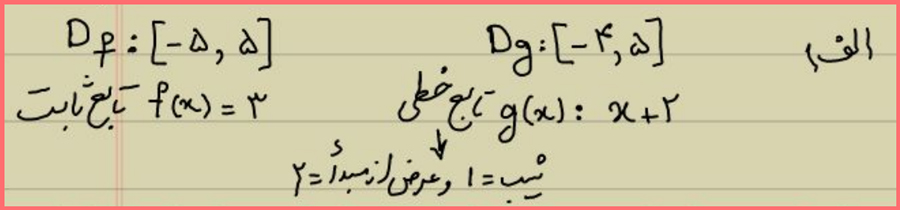 الف) Dg: [-۴, ۵] Df: [-۵, ۵]
g(x): x+۲ تابع خطی f(x) = ۳ تابع ثابت
↓
شیب = ۱ و عرض از مبدأ = ۲